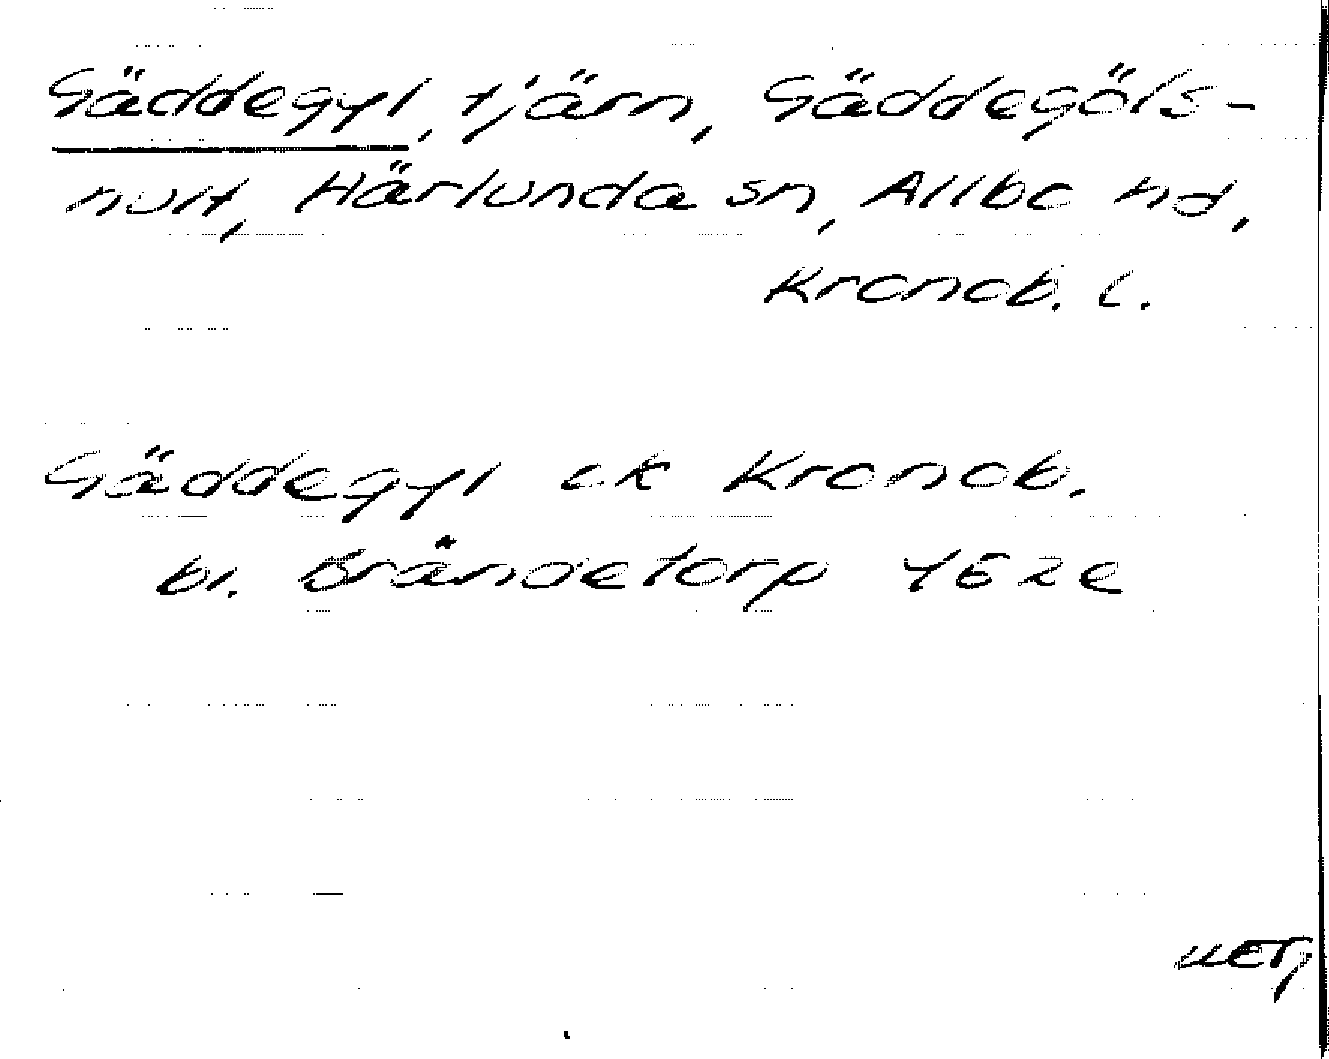 Gäddegyl, tjärn, Gäddegöls-
hult, Härlunda sn, Allbo hd,
Kronob. l.
Gäddegyl ek Kronob.
bl. Brånetorp 4E2e